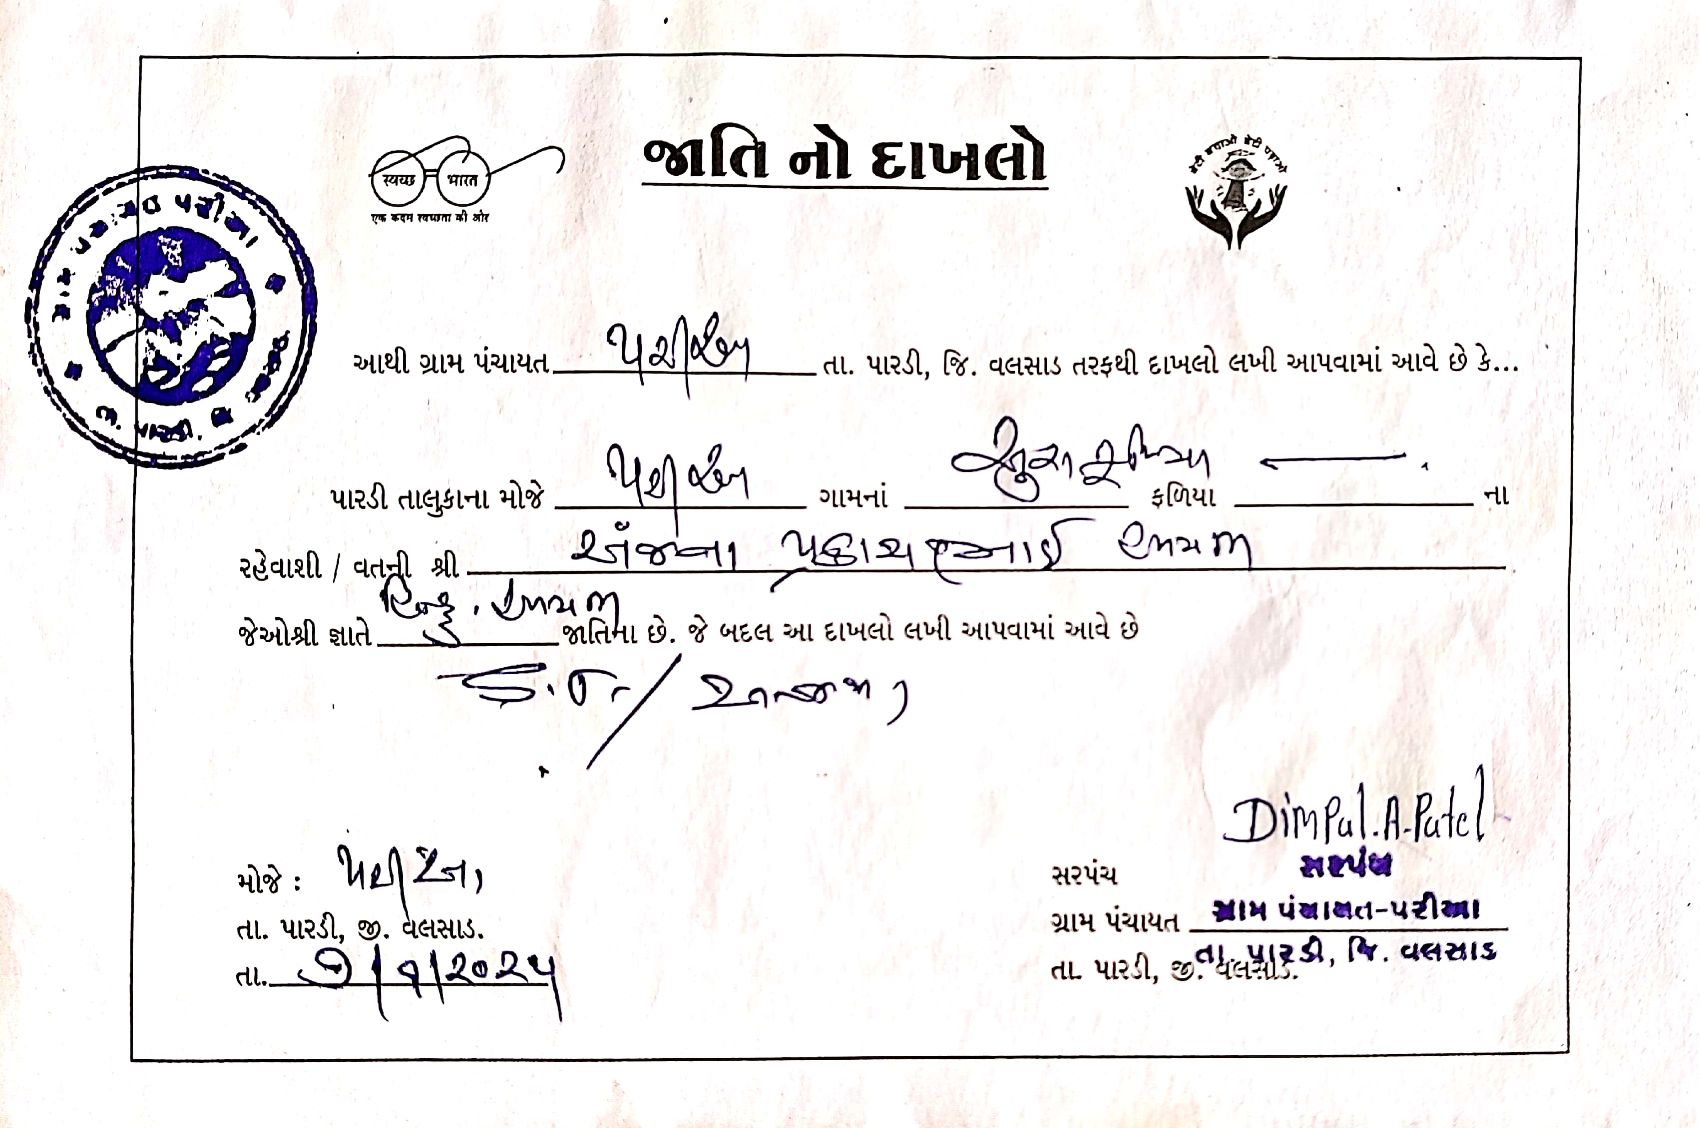 જાતિ નો દાખલો
स्वच्छ भारत
एक कदम स्वच्छता की ओर
બેટી બચાવો બેટી પઢાવો
ગ્રામ પંચાયત પરીઆ
તા. પારડી. જિ. વલસાડ
આથી ગ્રામ પંચાયત પરીઆ તા. પારડી, જિ. વલસાડ તરફથી દાખલો લખી આપવામાં આવે છે કે...
પારડી તાલુકાના મોજે પરીઆ ગામનાં ફળિયા ના
રહેવાશી / વતની શ્રી અંજના પ્રકાશભાઈ
જેઓશ્રી જ્ઞાતે હિન્દુ. જાતિના છે. જે બદલ આ દાખલો લખી આપવામાં આવે છે
Dimpal.A.Patel
મોજે : પરીઆ
સરપંચ સરપંચ
ગ્રામ પંચાયત ગ્રામ પંચાયત-પરીઆ
તા. પારડી, જી. વલસાડ.
તા. પારડી, જિ. વલસાડ
તા. ૭/૧/૨૦૨૫
તા. પારડી, જી. વલસાડ.